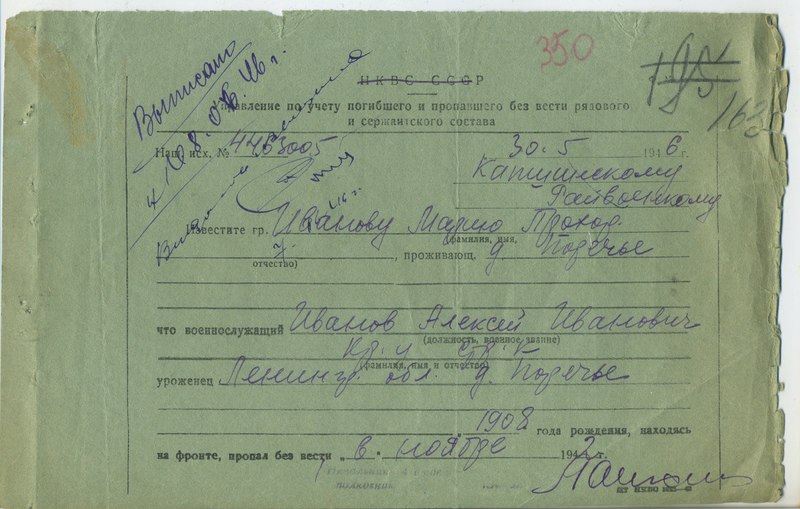 350
195
163
Выписано
НКВС СССР
Управление по учету погибшего и пропавшего без вести рядового
и сержантского состава
Наш исх. № 4463005
30. 5 1946 г.
Капшинскому
Райвоенкому
Известите гр. Иванову Марию Проход.
(фамилия, имя,
отчество)
, проживающ. д Поречье
что военнослужащий Иванов Алексей Иванович
(должность, военное звание)
кр-ц
(фамилия, имя и отчество)
уроженец Ленингр. обл. д. Поречье
1908 года рождения, находясь
на фронте, пропал без вести „в. ноябре 1942 г.